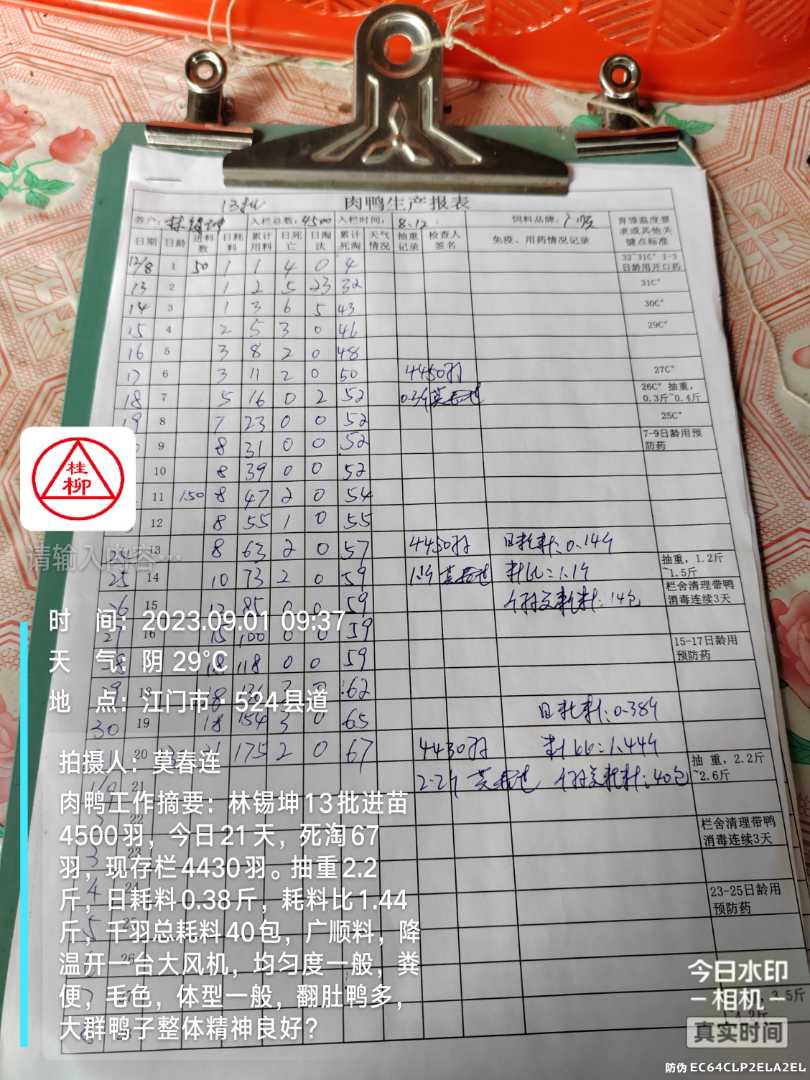 13批 肉鸭生产报表
客户: 林锡坤 入栏总数: 4500 入栏时间: 8.12. 饲料品牌: 广顺 育雏温度要求或其他关键点标准
日期 日龄 进料数 日耗料 累计用料 日死亡 日淘汰 累计死淘 天气情况 抽重记录 检查人签名 免疫、用药情况记录
12/8 1 50 1 1 4 0 4 32~31C° 1-3日龄用开口药
13 2 1 2 5 23 32 31C°
14 3 1 3 6 5 43 30C°
15 4 2 5 3 0 46 29C°
16 5 3 8 2 0 48
17 6 3 11 2 0 50 4450羽 27C°
18 7 5 16 0 2 52 莫春连 26C° 抽重,0.3斤~0.4斤
19 8 7 23 0 0 52 25C°
9 8 31 0 0 52 7-9日龄用预防药
10 8 39 0 0 52
11 150 8 47 2 0 54
12 8 55 1 0 55
24 13 8 63 2 0 57 4450羽 日耗料:0.14斤
25 14 10 73 2 0 59 莫春连 料比:1.1斤 抽重,1.2斤~1.5斤
26 15 12 85 0 0 59 千羽总耗料:14包 栏舍清理带鸭消毒连续3天
27 16 15 100 0 0 59
18 118 0 0 59 15-17日龄用预防药
18 62
30 19 18 154 3 0 65 日耗料:0.38斤
20 175 2 0 67 4430羽 料比:1.44斤
21 2.2斤 莫春连 千羽总耗料:40包 抽重,2.2斤~2.6斤
栏舍清理带鸭消毒连续3天
3 23
4 24
5 25 23-25日龄用预防药
26
桂柳
请输入内容…
时 间: 2023.09.01 09:37
天 气: 阴 29°C
地 点: 江门市·524县道
拍摄人: 莫春连
肉鸭工作摘要: 林锡坤13批进苗
4500羽, 今日21天, 死淘67
羽, 现存栏4430羽。抽重2.2
斤, 日耗料0.38斤, 耗料比1.44
斤, 千羽总耗料40包, 广顺料, 降
温开一台大风机, 均匀度一般, 粪
便, 毛色, 体型一般, 翻肚鸭多,
大群鸭子整体精神良好?
今日水印
相机
真实时间
防伪 EC64CLP2ELA2EL